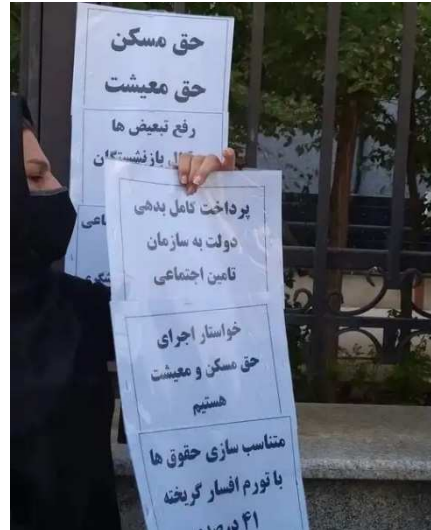 حق مسکن
حق معیشت
رفع تبعیض ها
بازنشستگان
پرداخت کامل بدهی
دولت به سازمان
تامین اجتماعی
خواستار اجرای
حق مسکن و معیشت
هستیم
متناسب سازی حقوق ها
با تورم افسار گریخته
۴۱ درصدی